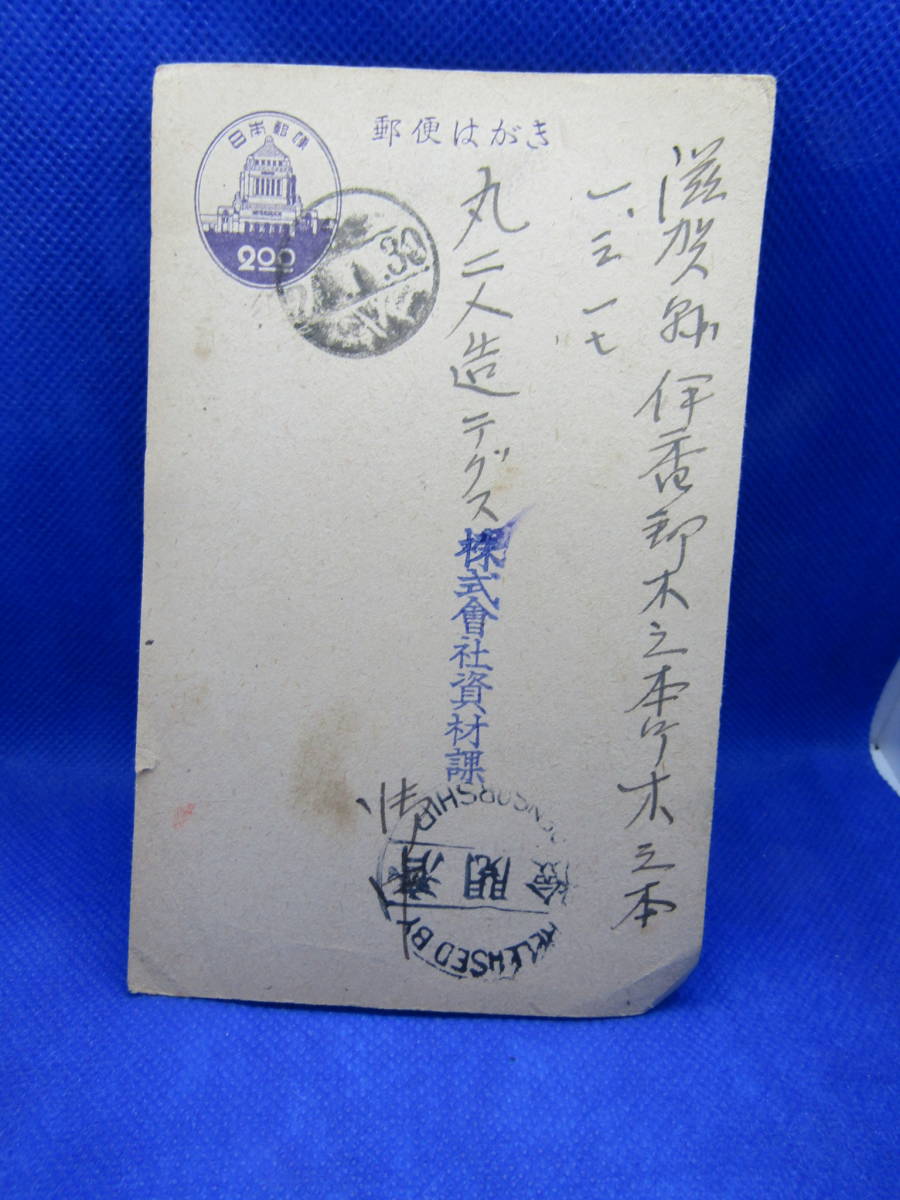 郵便はがき
日本郵便
2.00
.1.30
滋賀縣伊香郡木之本町木之本
一、三一七
丸二人造テグス
株式會社資材課
御中
RELEASED BY CENSORSHIP
檢閱濟